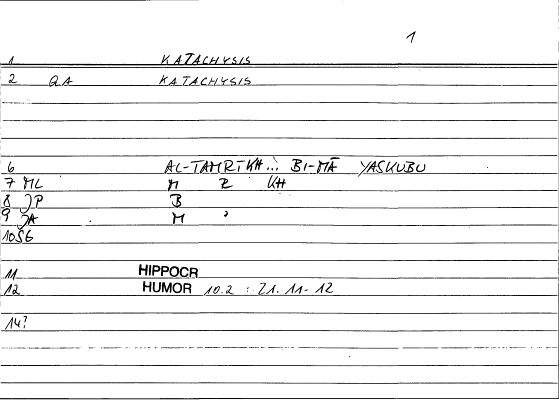 1
1 KATACHYSIS
2 QA KATACHYSIS
6 AL-TAMRĪKH... BI-MĀ YASKUBU
7 ML M R KH
8 JP B
9 JA M ,
10 SG
11 HIPPOCR
12 HUMOR 10.2 : 21. 11-12
14?